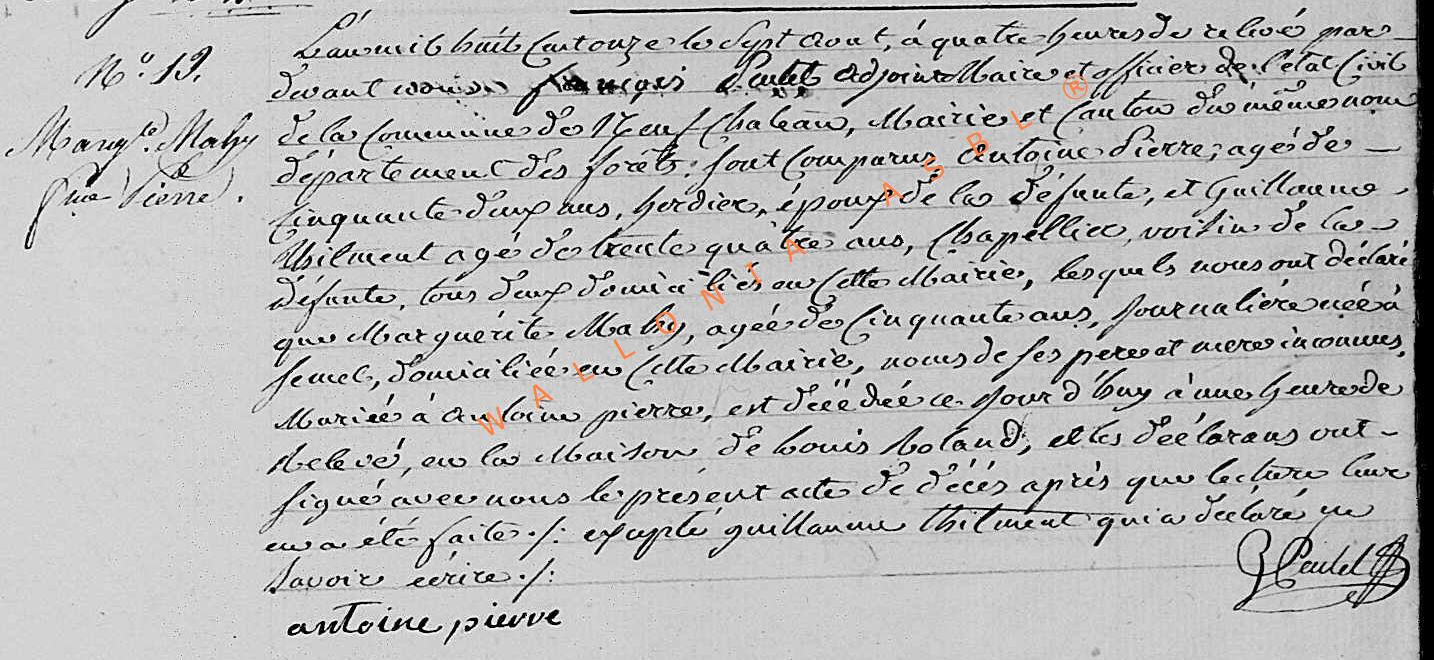 N.o 19.
Margte. Mahy
fme Pierre.
L'an mil huit cent onze le sept aout, à quatre heures de relevé par
devant nous françois Poulet adjoint Maire et officier de l'état Civil
de la Commune de Neufchateau, Mairie et Canton du même nom
département des forêts; sont comparus, Antoine Pierre, agé de
Cinquante deux ans, herdier, époux de la défunte, et Guillaume
Thilment agé de trente quatre ans, Chapellier, voisin de la
défunte, tous deux domiciliés en cette Mairie, lesquels nous ont déclaré
que Marguérite Mahy, agée de Cinquante ans, journaliére née à
semel, domiciliée en cette Mairie, noms de ses pere et mere inconnus,
Mariée à antoine pierre, est décédée ce jour d'huy à une heure de
Relevé, en la Maison de Louis Roland, et les déclarans ont
signé avec nous le présent acte de décés après que lecture leur
en a été faite ./: excepté guillaume thilment qui a declaré ne
savoir écrire ./:
antoine pierre
WALLONIA ASBL ®